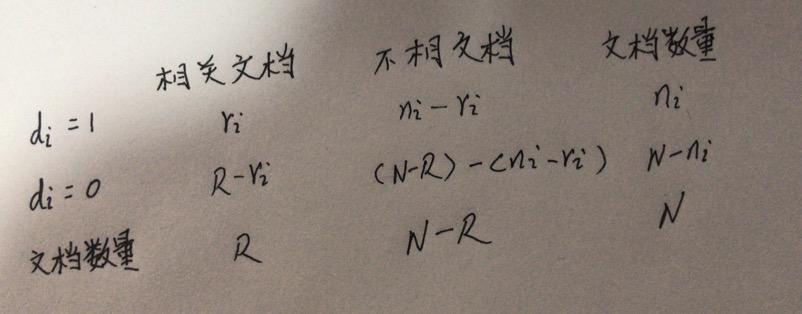 相关文档 不相文档 文档数量
di=1 ri ni-ri ni
di=0 R-ri (N-R)-(ni-ri) N-ni
文档数量 R N-R N